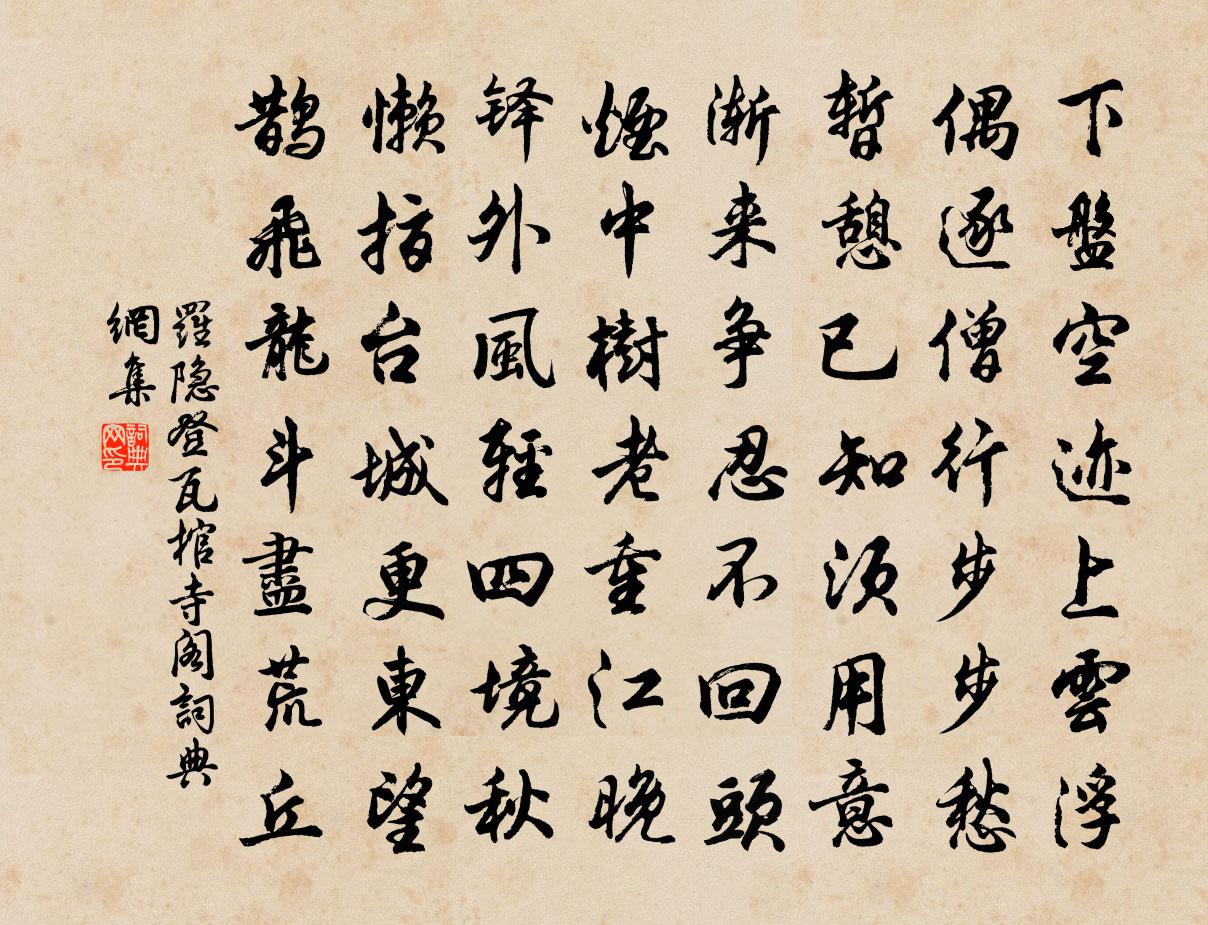 下盤空迹上雲浮
偶逐僧行步步愁
暫憩已知須用意
漸来争忍不回頭
煙中樹老重江晚
铎外風輕四境秋
懒指台城更東望
鵲飛龍斗盡荒丘
羅隐登瓦棺寺阁詞典
網集
詞典网印